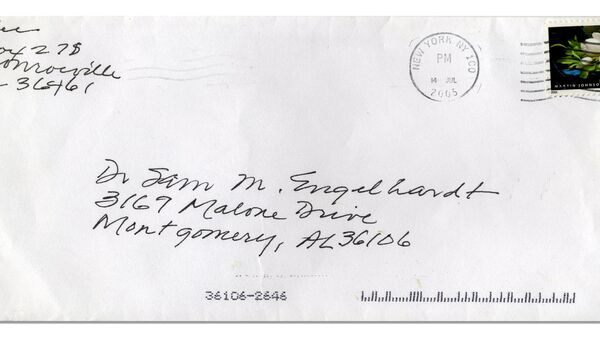 278
Monroeville
36461
NEW YORK NY 100
PM
14 JUL
2005
MARTIN JOHNSON
Dr Sam M. Engelhardt
3167 Malone Drive
Montgomery, AL 36106
36106-2646